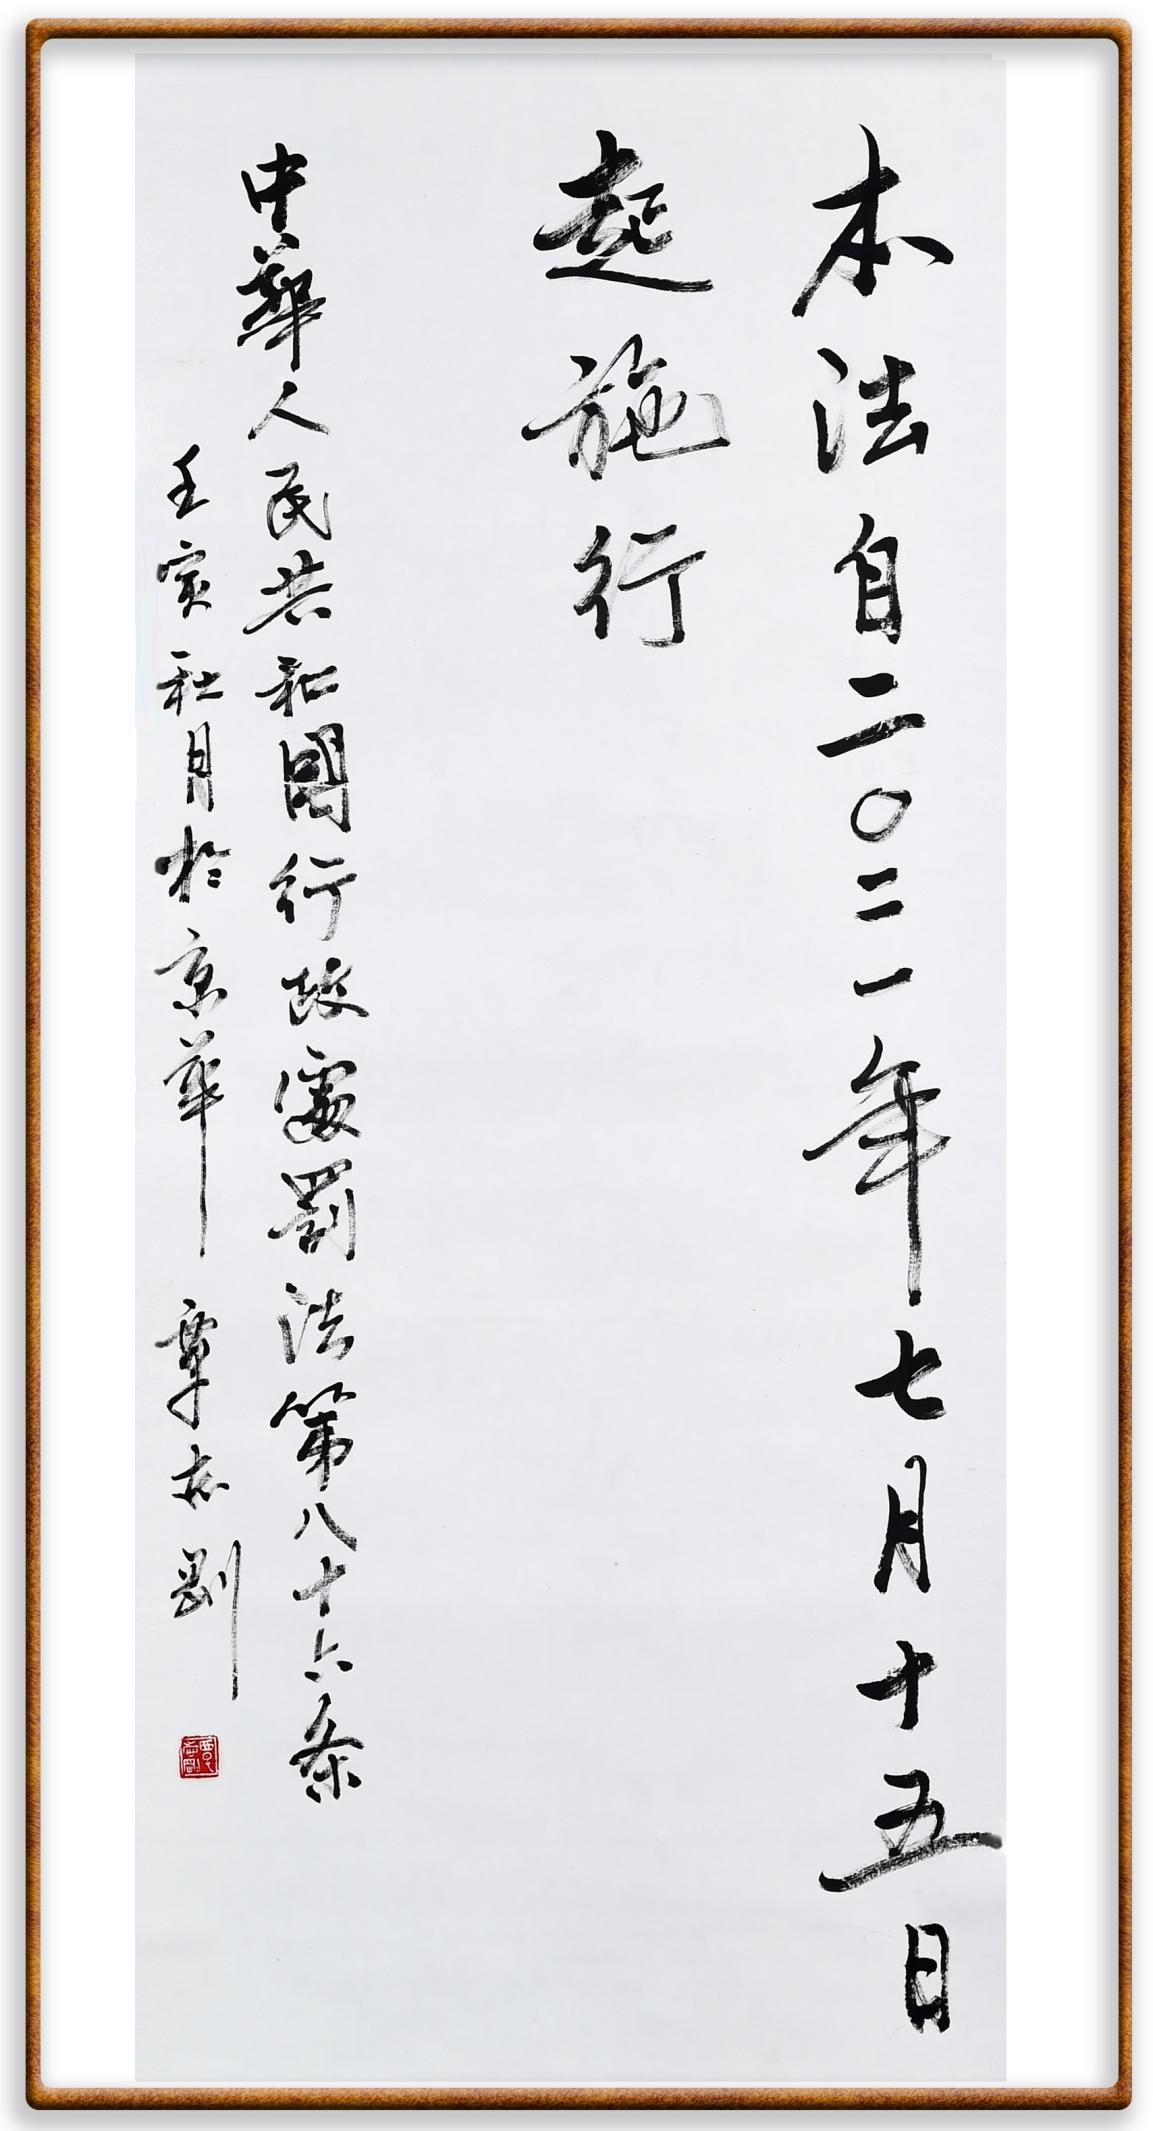 本法自二〇二一年七月十五日
起施行
中華人民共和國行政處罰法第八十六条
壬寅社月於京華 覃志剛
覃志剛